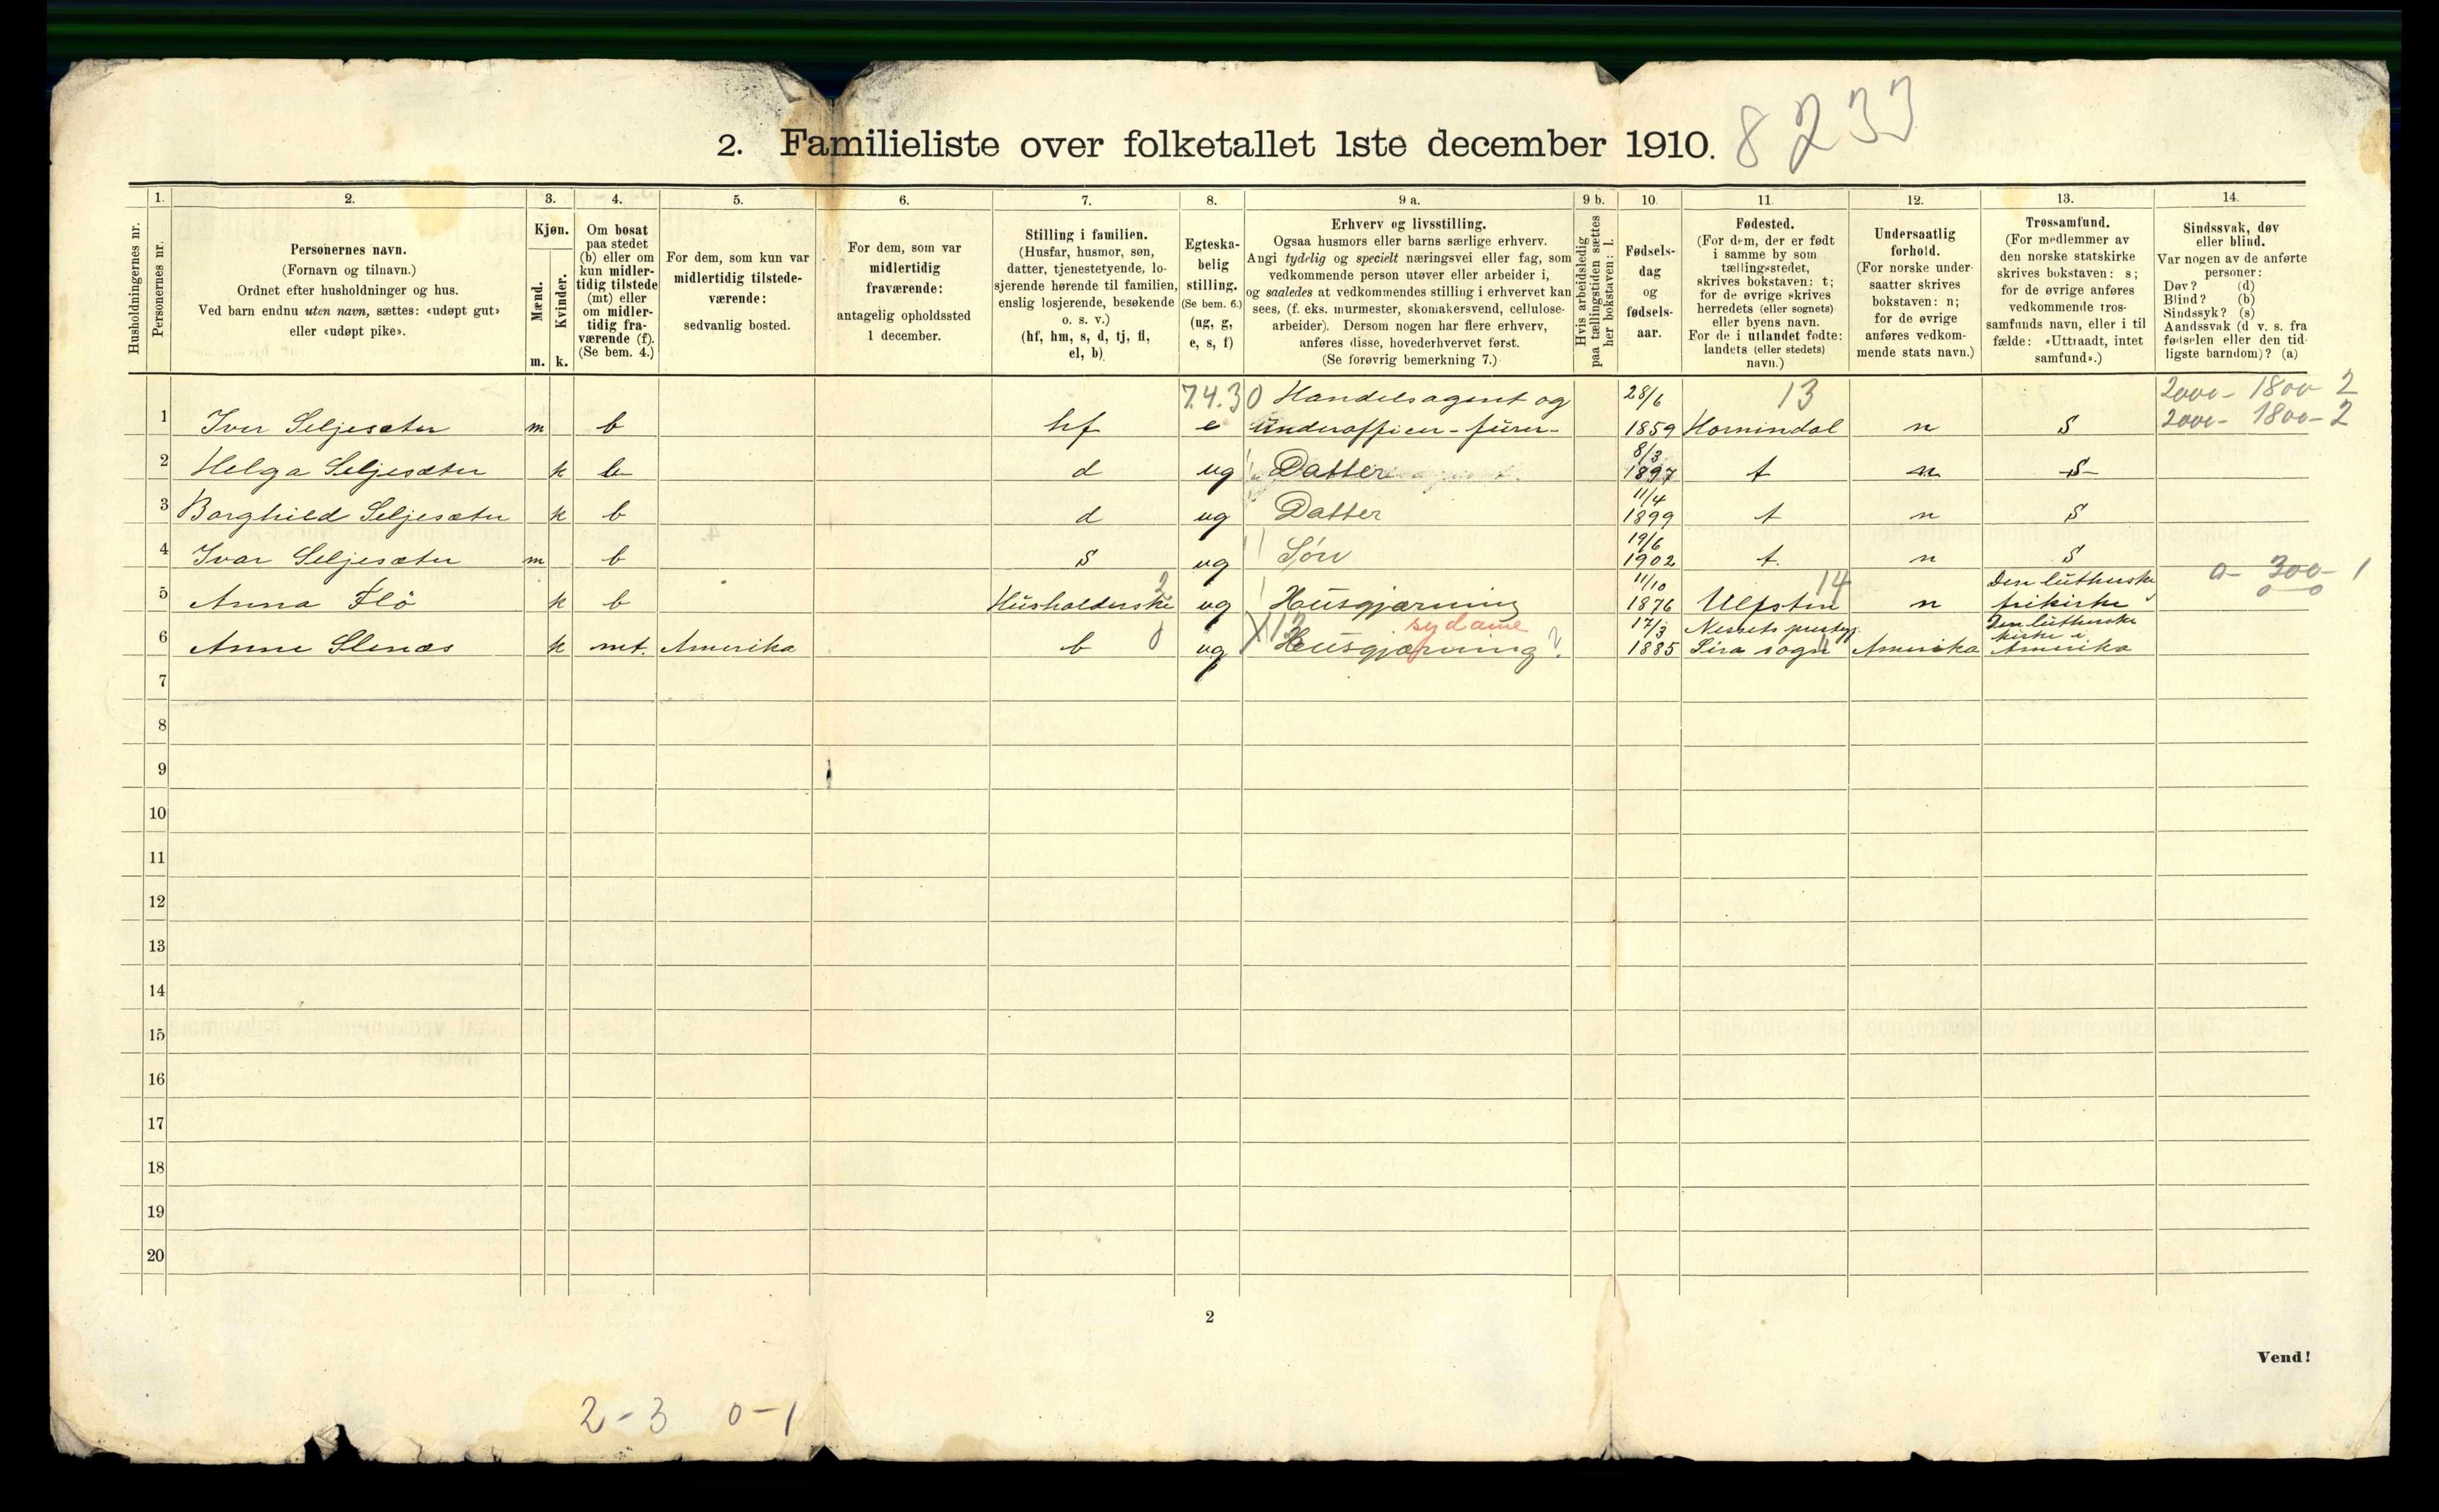 2. Familieliste over folketallet 1ste december 1910. 8233
Husholdningernes nr.
1.
Personernes nr.
2.
Personernes navn.
(Fornavn og tilnavn.)
Ordnet efter husholdninger og hus.
Ved barn endnu uten navn, sættes: «udøpt gut»
eller «udøpt pike».
3.
Kjøn.
Mænd.
m.
Kvinder.
k.
4.
Om bosat
paa stedet
(b) eller om
kun midler-
tidig tilstede
(mt) eller
om midler-
tidig fra-
værende (f).
(Se bem. 4.)
5.
For dem, som kun var
midlertidig tilstede-
værende:
sedvanlig bosted.
6.
For dem, som var
midlertidig
fraværende:
antagelig opholdssted
1 december.
7.
Stilling i familien.
(Husfar, husmor, søn,
datter, tjenestetyende, lo-
sjerende hørende til familien,
enslig losjerende, besøkende
o. s. v.)
(hf, hm, s, d, tj, fl,
el, b)
8.
Egteska-
belig
stilling.
(Se bem. 6.)
(ug, g,
e, s, f)
9 a.
Erhverv og livsstilling.
Ogsaa husmors eller barns særlige erhverv.
Angi tydelig og specielt næringsvei eller fag, som
vedkommende person utøver eller arbeider i,
og saaledes at vedkommendes stilling i erhvervet kan
sees, (f. eks. murmester, skomakersvend, cellulose-
arbeider). Dersom nogen har flere erhverv,
anføres disse, hovederhvervet først.
(Se forøvrig bemerkning 7.)
9 b.
Hvis arbeidsledig
paa tællingstiden sættes
her bokstaven: l.
10.
Fødsels-
dag
og
fødsels-
aar.
11.
Fødested.
(For dem, der er født
i samme by som
tællingsstedet,
skrives bokstaven: t;
for de øvrige skrives
herredets (eller sognets)
eller byens navn.
For de i utlandet fødte:
landets (eller stedets)
navn.)
12.
Undersaatlig
forhold.
(For norske under-
saatter skrives
bokstaven: n;
for de øvrige
anføres vedkom-
mende stats navn.)
13.
Trossamfund.
(For medlemmer av
den norske statskirke
skrives bokstaven: s;
for de øvrige anføres
vedkommende tros-
samfunds navn, eller i til
fælde: «Uttraadt, intet
samfund».)
14.
Sindssvak, døv
eller blind.
Var nogen av de anførte
personer:
Døv? (d)
Blind? (b)
Sindssyk? (s)
Aandssvak (d v. s. fra
fødselen eller den tid-
ligste barndom)? (a)
7.4.30 Handelsagent og 28/6 13 2000- 1800- 2
1 Iver Seljesæter m b hf e Underofficer-furer- 1859 Hornindal n S 2000- 1800- 2
8/3
2 Helga Seljesæter k b d ug Datter 1897 t n S
11/4
3 Borghild Seljesæter k b d ug Datter 1899 t n S
19/6
4 Ivar Seljesæter m b S ug Søn 1902 t. n S
2 11/10 14 Den lutherske 0- 300- 1
5 Anna Flö k b Husholderske ug Husgjærning 1876 Ulfsten n frikirke 0-0
X12 sydame 17/3 Nessets prestegj. Den lutherske
kirke i
6 Anne Slenæs k mt. Amerika b 0 ug Husgjærning ? 1885 Sira sogn Amerika Amerika
7
8
9
10
11
12
13
14
15
16
17
18
19
20
2
Vend!
2-3 0-1